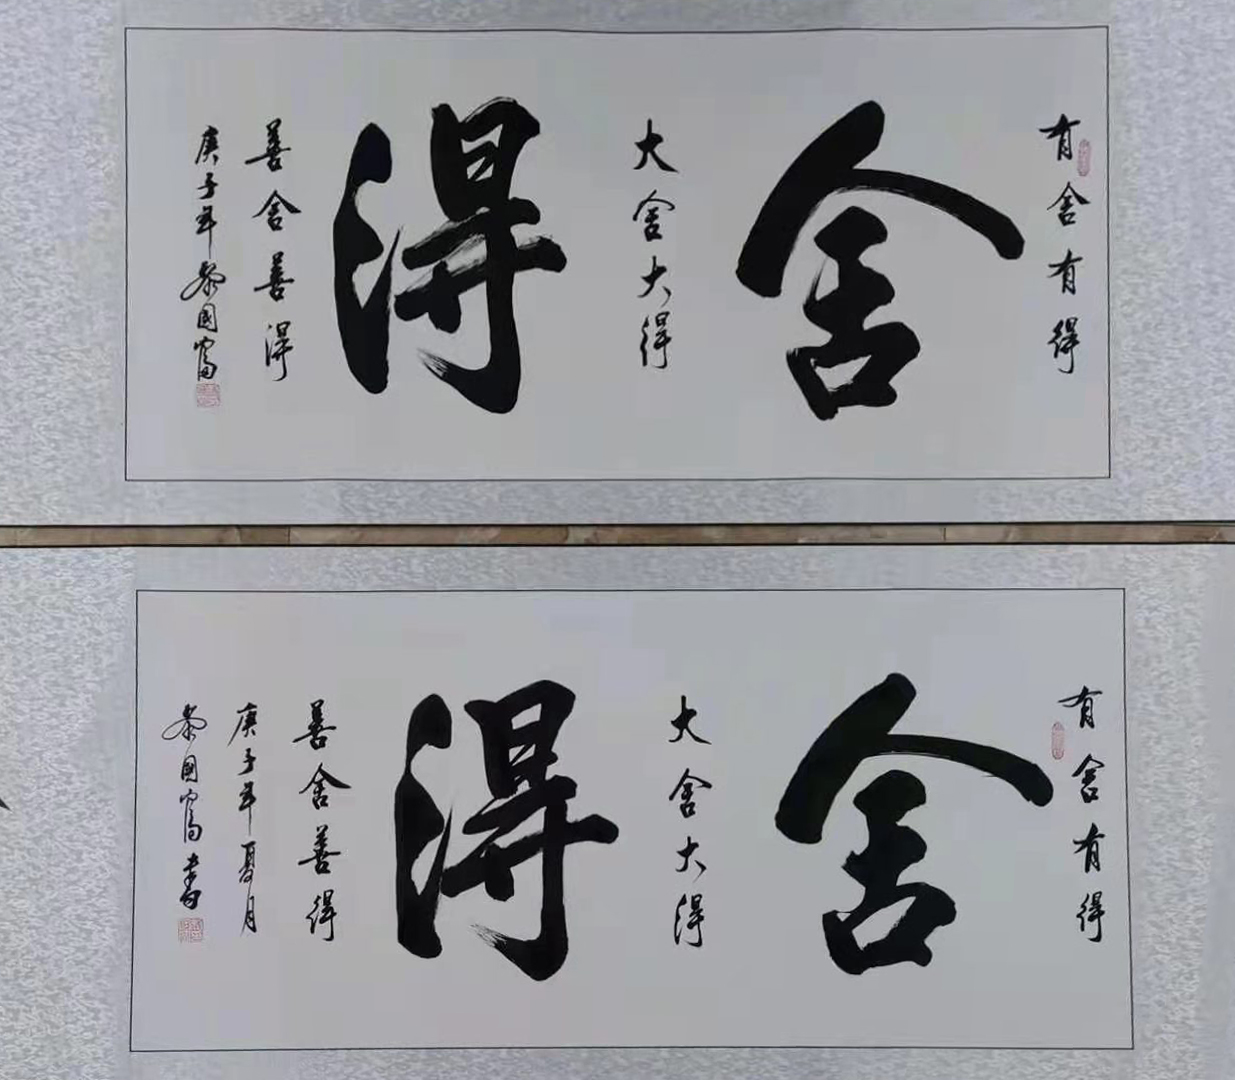 有舍有得
舍
大舍大得
得
善舍善得
庚子年国富
有舍有得
舍
大舍大得
得
善舍善得
庚子年夏月
国富書